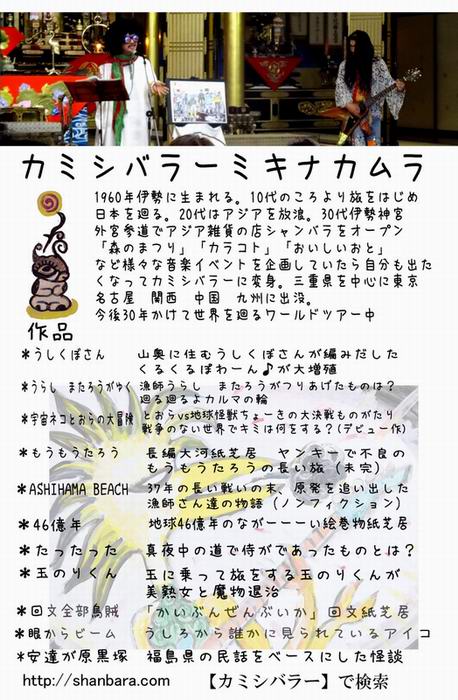 カミシバラーミキナカムラ
1960年伊勢に生まれる。10代のころより旅をはじめ
日本を廻る。20代はアジアを放浪。30代伊勢神宮
外宮参道でアジア雑貨の店シャンバラをオープン
「森のまつり」「カラコト」「おいしいおと」
など様々な音楽イベントを企画していたら自分も出た
くなってカミシバラーに変身。三重県を中心に東京
名古屋 関西 中国 九州に出没。
今後30年かけて世界を廻るワールドツアー中
作品
*うしくぼさん 山奥に住むうしくぼさんが編みだした
くるくるぽわーん♪が大増殖
*うらし またろうがゆく 漁師うらし またろうがつりあげたものは？
廻る廻るよカルマの輪
*宇宙ネコとおらの大冒険 とおらvs地球怪獣ちょーきの大決戦ものがたり
戦争のない世界でキミは何をする？(デビュー作)
*もうもうたろう 長編大河紙芝居 ヤンキーで不良の
もうもうたろうの長い旅（未完）
*ASHIHAMA BEACH 37年の長い戦いの末、原発を追い出した
漁師さん達の物語（ノンフィクション）
*46億年 地球46億年のながーーーい絵巻物紙芝居
*たったった 真夜中の道で侍がであったものとは？
*玉のりくん 玉に乗って旅をする玉のりくんが
美熟女と魔物退治
*回文全部烏賊 「かいぶんぜんぶいか」回文紙芝居
*眼からビーム うしろから誰かに見られているアイコ
*安達が原黒塚 福島県の民話をベースにした怪談
http://shanbara.com 【カミシバラー】で検索